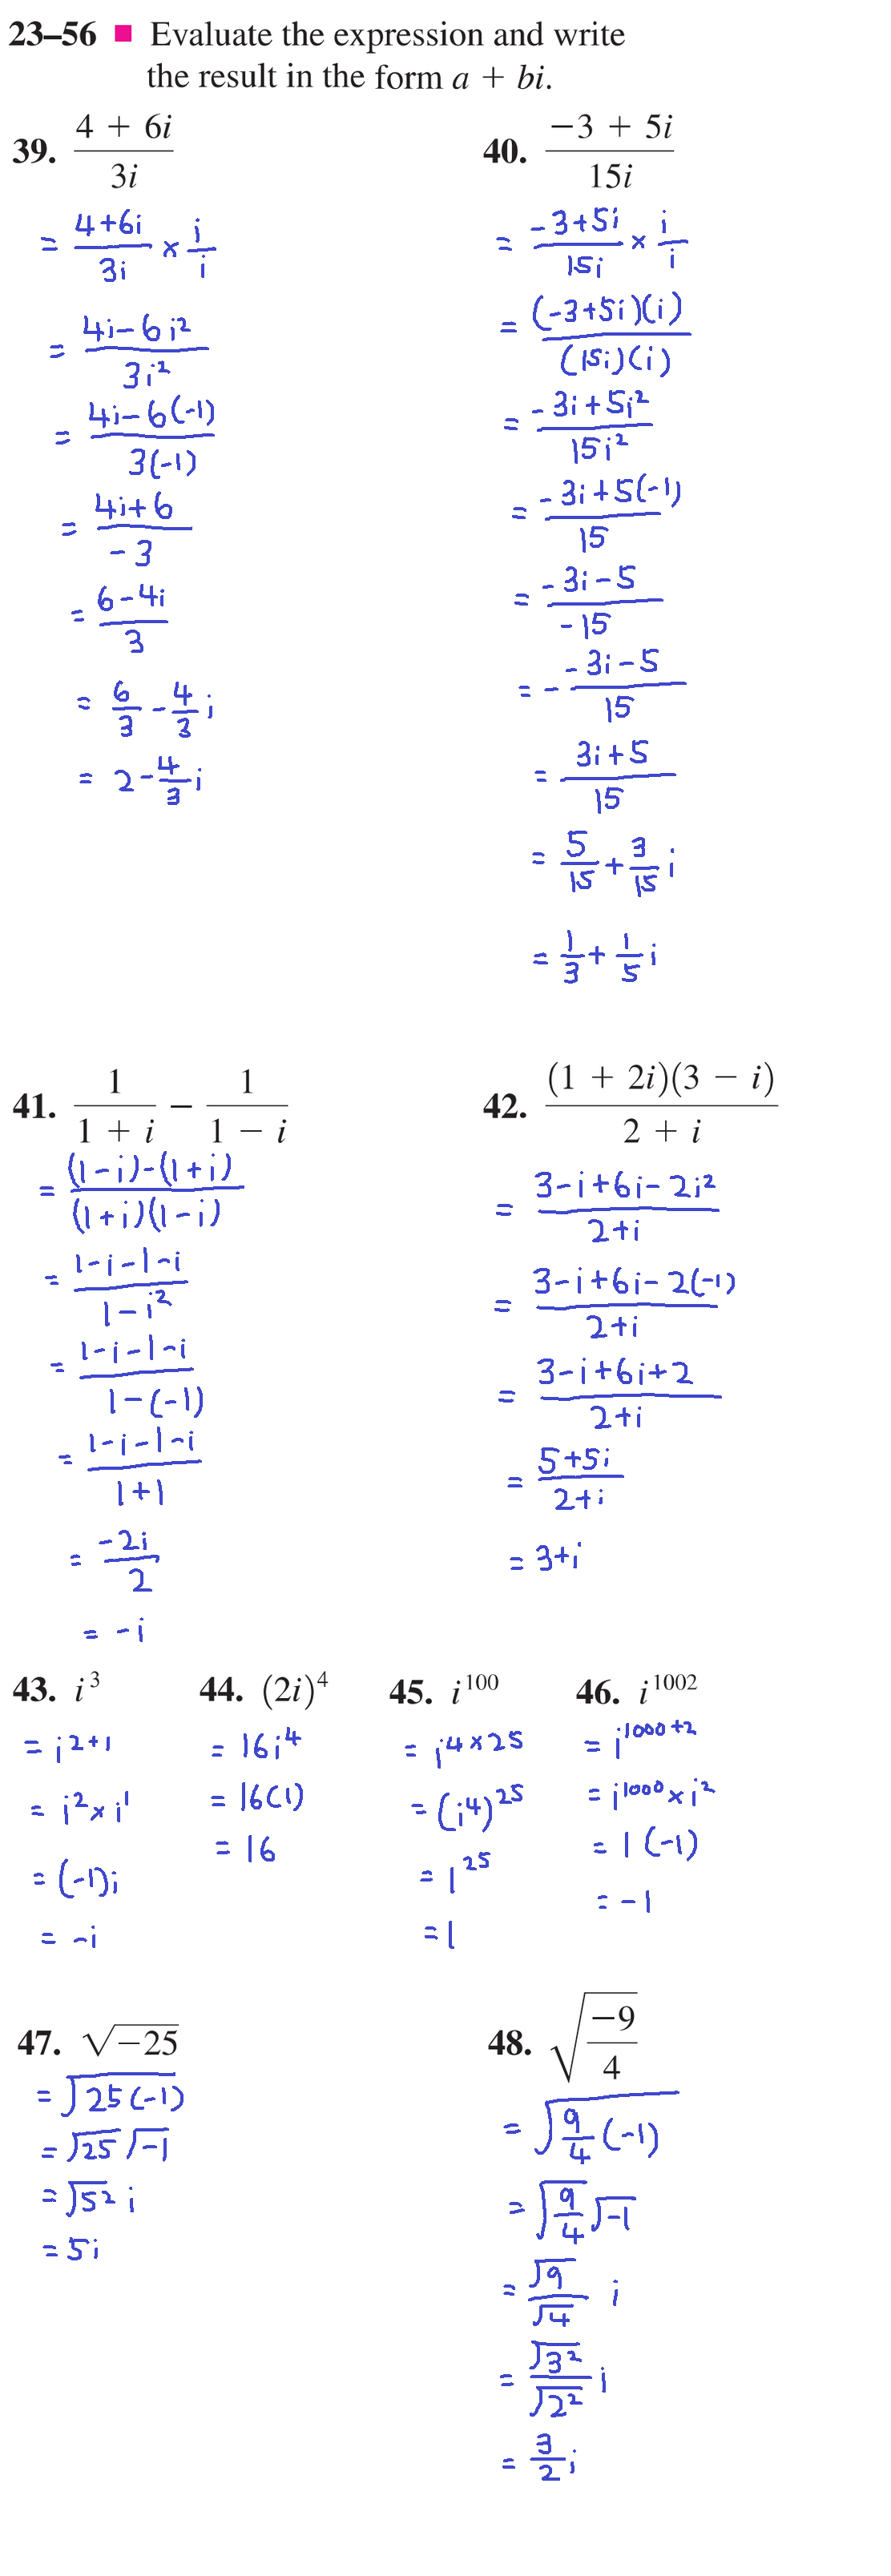 23–56 ■ Evaluate the expression and write
the result in the form a + bi.
39. (4 + 6i)/(3i)
= (4+6i)/(3i) × i/i
= (4i-6i²)/(3i²)
= (4i-6(-1))/(3(-1))
= (4i+6)/(-3)
= (6-4i)/3
= 6/3 - 4/3 i
= 2-4/3 i
40. (−3 + 5i)/(15i)
= (-3+5i)/(15i) × i/i
= ((-3+5i)(i))/((15i)(i))
= (-3i+5i²)/(15i²)
= (-3i+5(-1))/15
= (-3i-5)/(-15)
= -(-3i-5)/15
= (3i+5)/15
= 5/15 + 3/15 i
= 1/3 + 1/5 i
41. 1/(1 + i) − 1/(1 − i)
= ((1-i)-(1+i))/((1+i)(1-i))
= (1-i-1-i)/(1-i²)
= (1-i-1-i)/(1-(-1))
= (1-i-1-i)/(1+1)
= (-2i)/2
= -i
42. ((1 + 2i)(3 − i))/(2 + i)
= (3-i+6i-2i²)/(2+i)
= (3-i+6i-2(-1))/(2+i)
= (3-i+6i+2)/(2+i)
= (5+5i)/(2+i)
= 3+i
43. i³
= i²⁺¹
= i² × i¹
= (-1)i
= -i
44. (2i)⁴
= 16i⁴
= 16(1)
= 16
45. i¹⁰⁰
= i^(4×25)
= (i⁴)²⁵
= 1²⁵
= 1
46. i¹⁰⁰²
= i¹⁰⁰⁰⁺²
= i¹⁰⁰⁰ × i²
= 1(-1)
= -1
47. √−25
= √25(-1)
= √25 √-1
= √5² i
= 5i
48. √(−9/4)
= √(9/4 (-1))
= √(9/4) √-1
= √9/√4 i
= √3²/√2² i
= 3/2 i